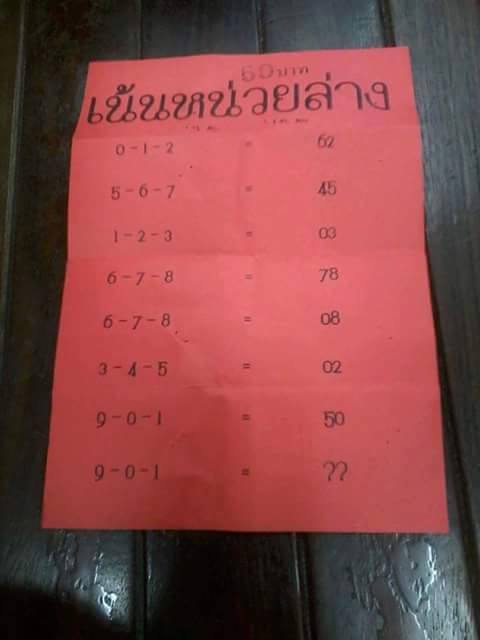 60 บาท
เน้นหน่วยล่าง
0-1-2 = 62
5-6-7 = 45
1-2-3 = 03
6-7-8 = 78
6-7-8 = 08
3-4-5 = 02
9-0-1 = 50
9-0-1 = ??